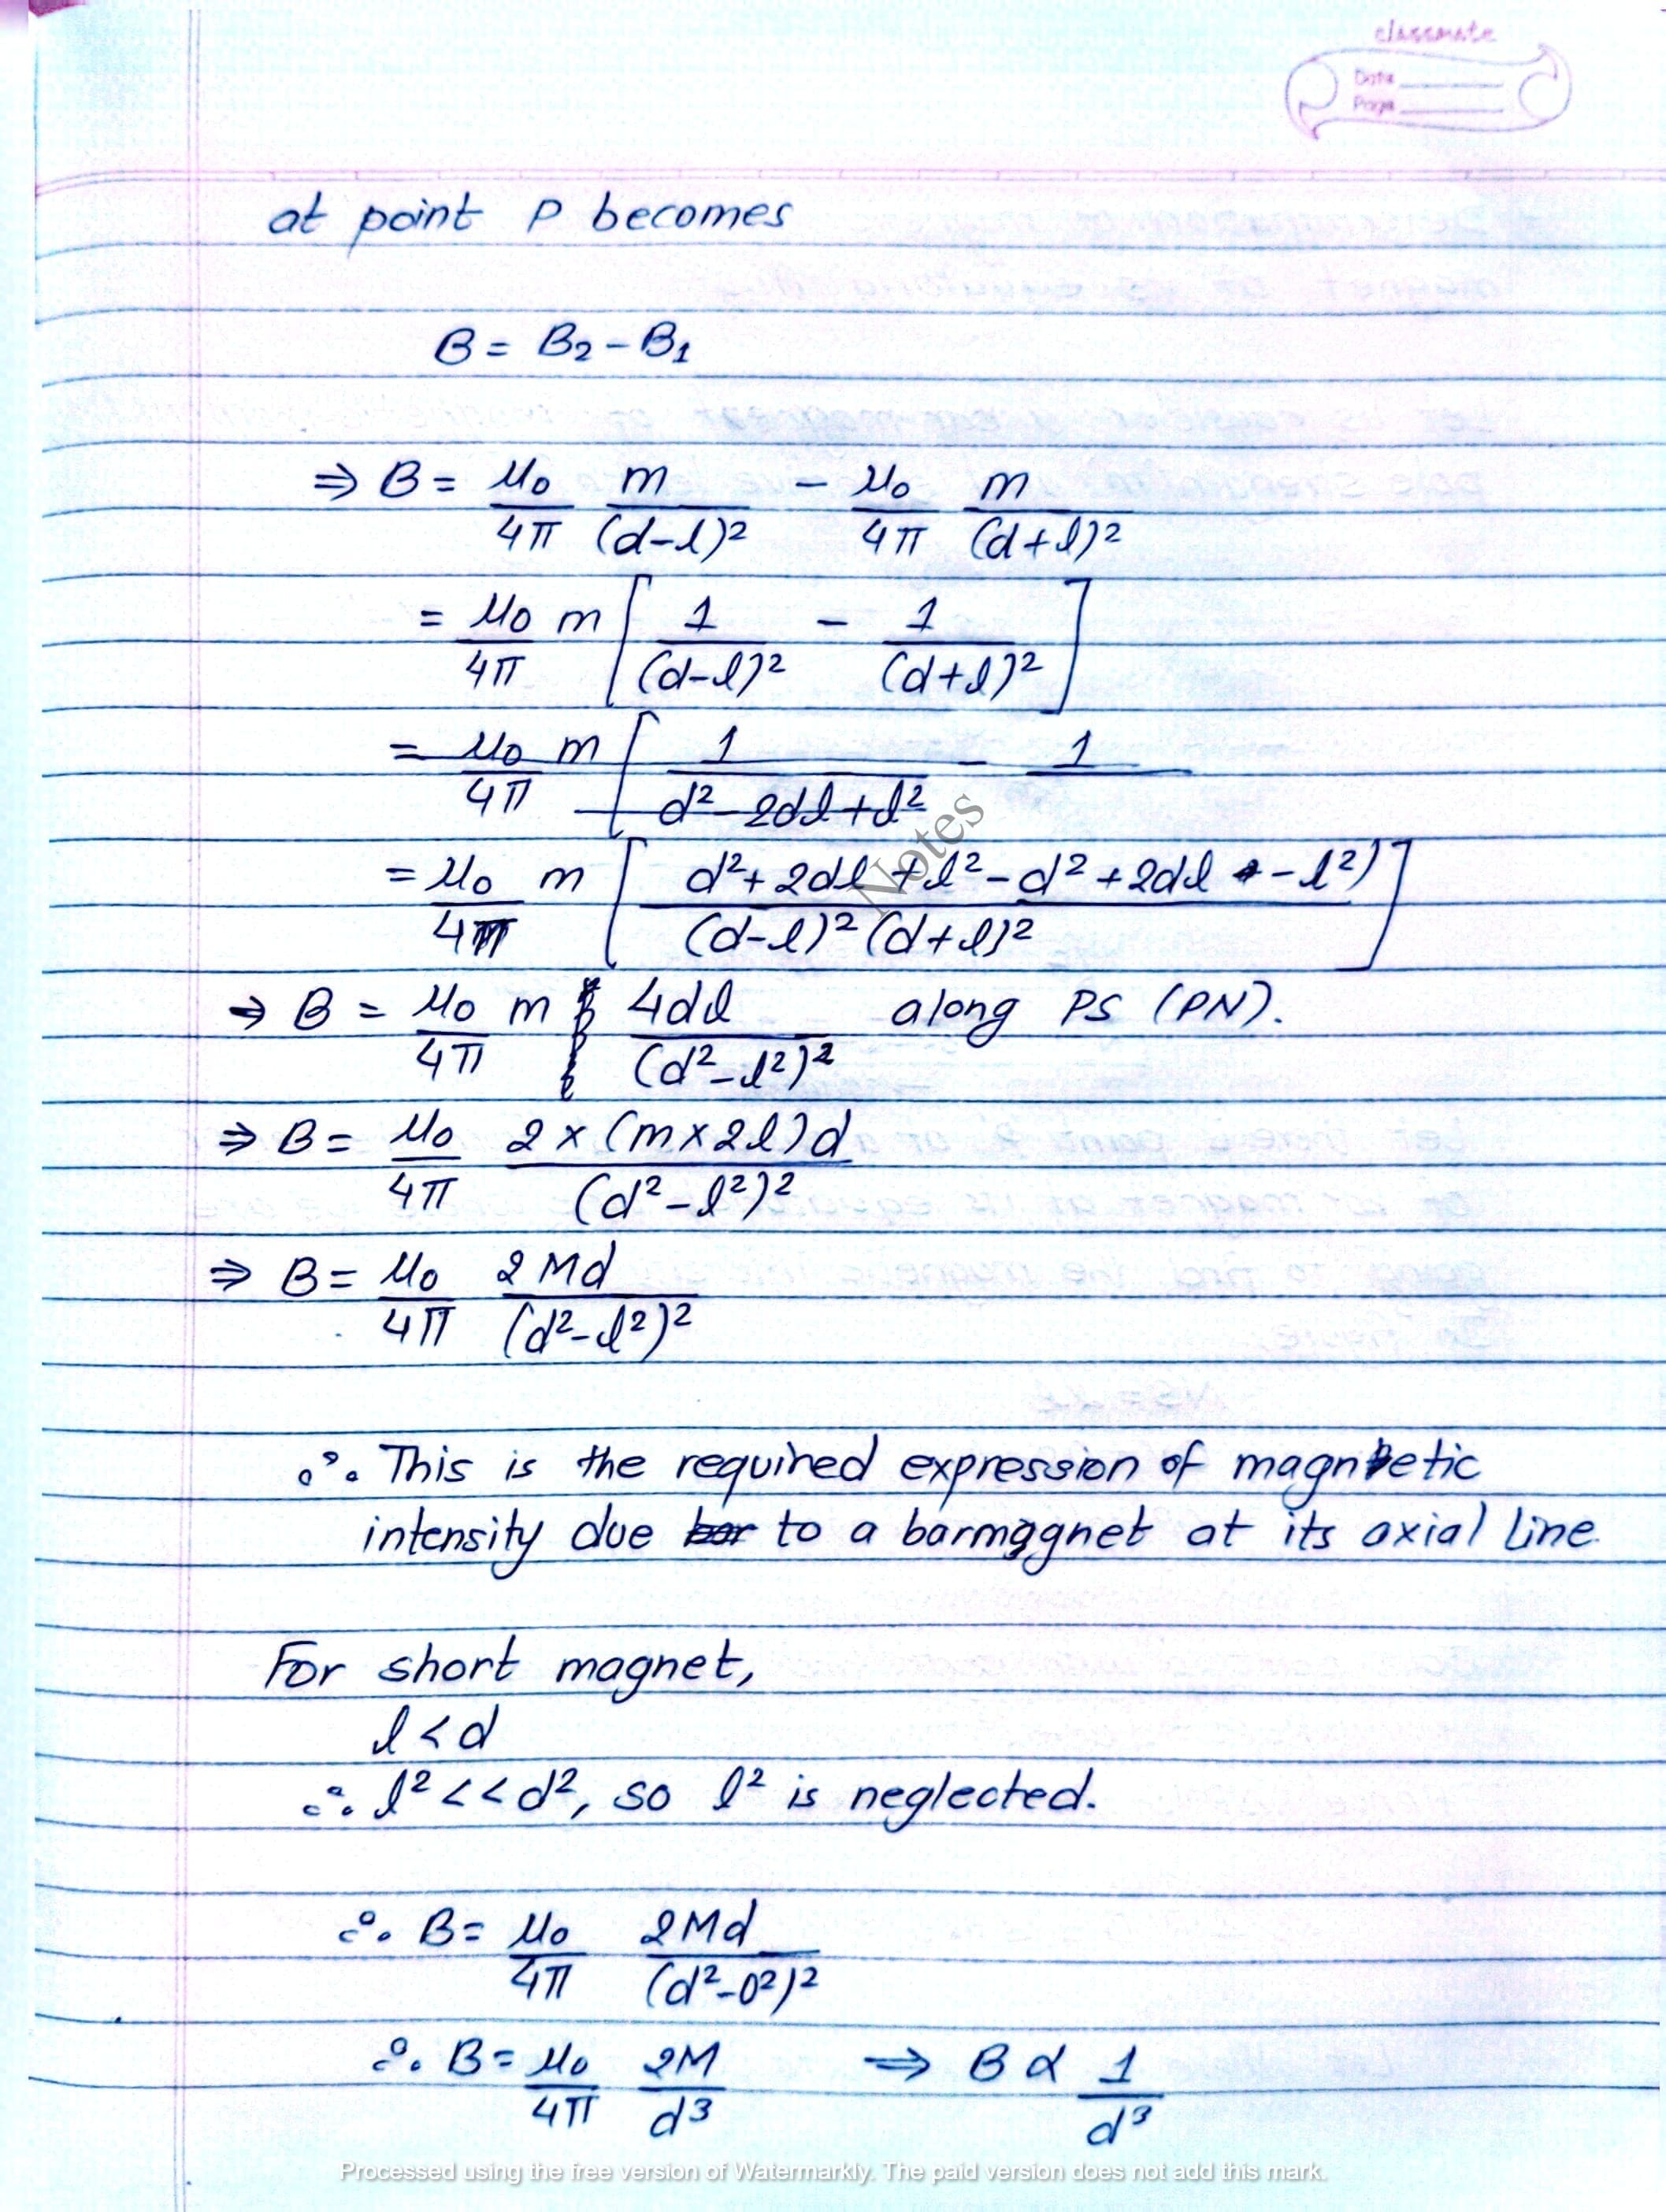 classmate
Date
Page
at point P becomes
B = B₂ - B₁
⇒ B = μ₀/4π m/(d-l)² - μ₀/4π m/(d+l)²
= μ₀/4π m [1/(d-l)² - 1/(d+l)²]
= μ₀/4π m [1/(d²-2dl+l²) - 1
= μ₀/4π m [(d²+2dl+l²-d²+2dl-l²)/((d-l)²(d+l)²)]
⇒ B = μ₀/4π m 4dl/(d²-l²)² along PS (PN).
⇒ B = μ₀/4π 2×(m×2l)d/(d²-l²)²
⇒ B = μ₀/4π 2Md/(d²-l²)²
∴ This is the required expression of magnetic
intensity due bar to a barmagnet at its axial line.
For short magnet,
l<d
∴ l²<<d², so l² is neglected.
∴ B = μ₀/4π 2Md/(d²-0²)²
∴ B = μ₀/4π 2M/d³ ⇒ B α 1/d³
Notes
Processed using the free version of Watermarkly. The paid version does not add this mark.